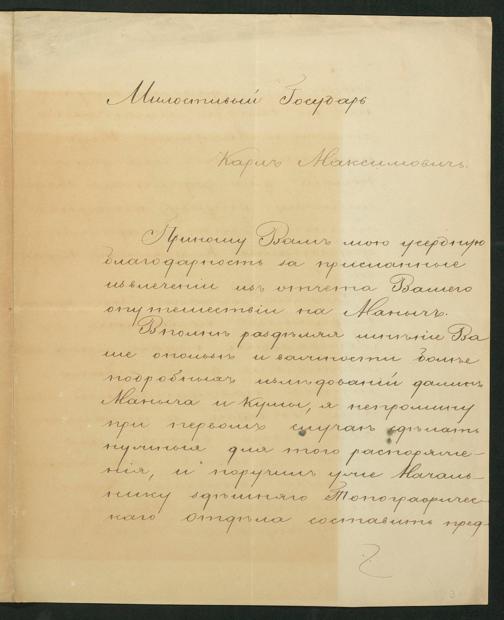 Милостивый Государь
Карлъ Максимовичъ.
Приношу Вамъ мою усердную
благодарность за присланные
извлеченіи изъ отчета Вашего
о путешествіи на Манычъ.
Вполнѣ раздѣляя мнѣніе Ва
ше о пользѣ и важности болѣе
подробныхъ изслѣдованій долинъ
Маныча и Кумы, я непромину
при первомъ случаѣ сдѣлать
нужныя для того распоряже-
нія, и поручилъ уже Началь-
нику здѣшняго Топографичес-
каго отдѣла составить пред-